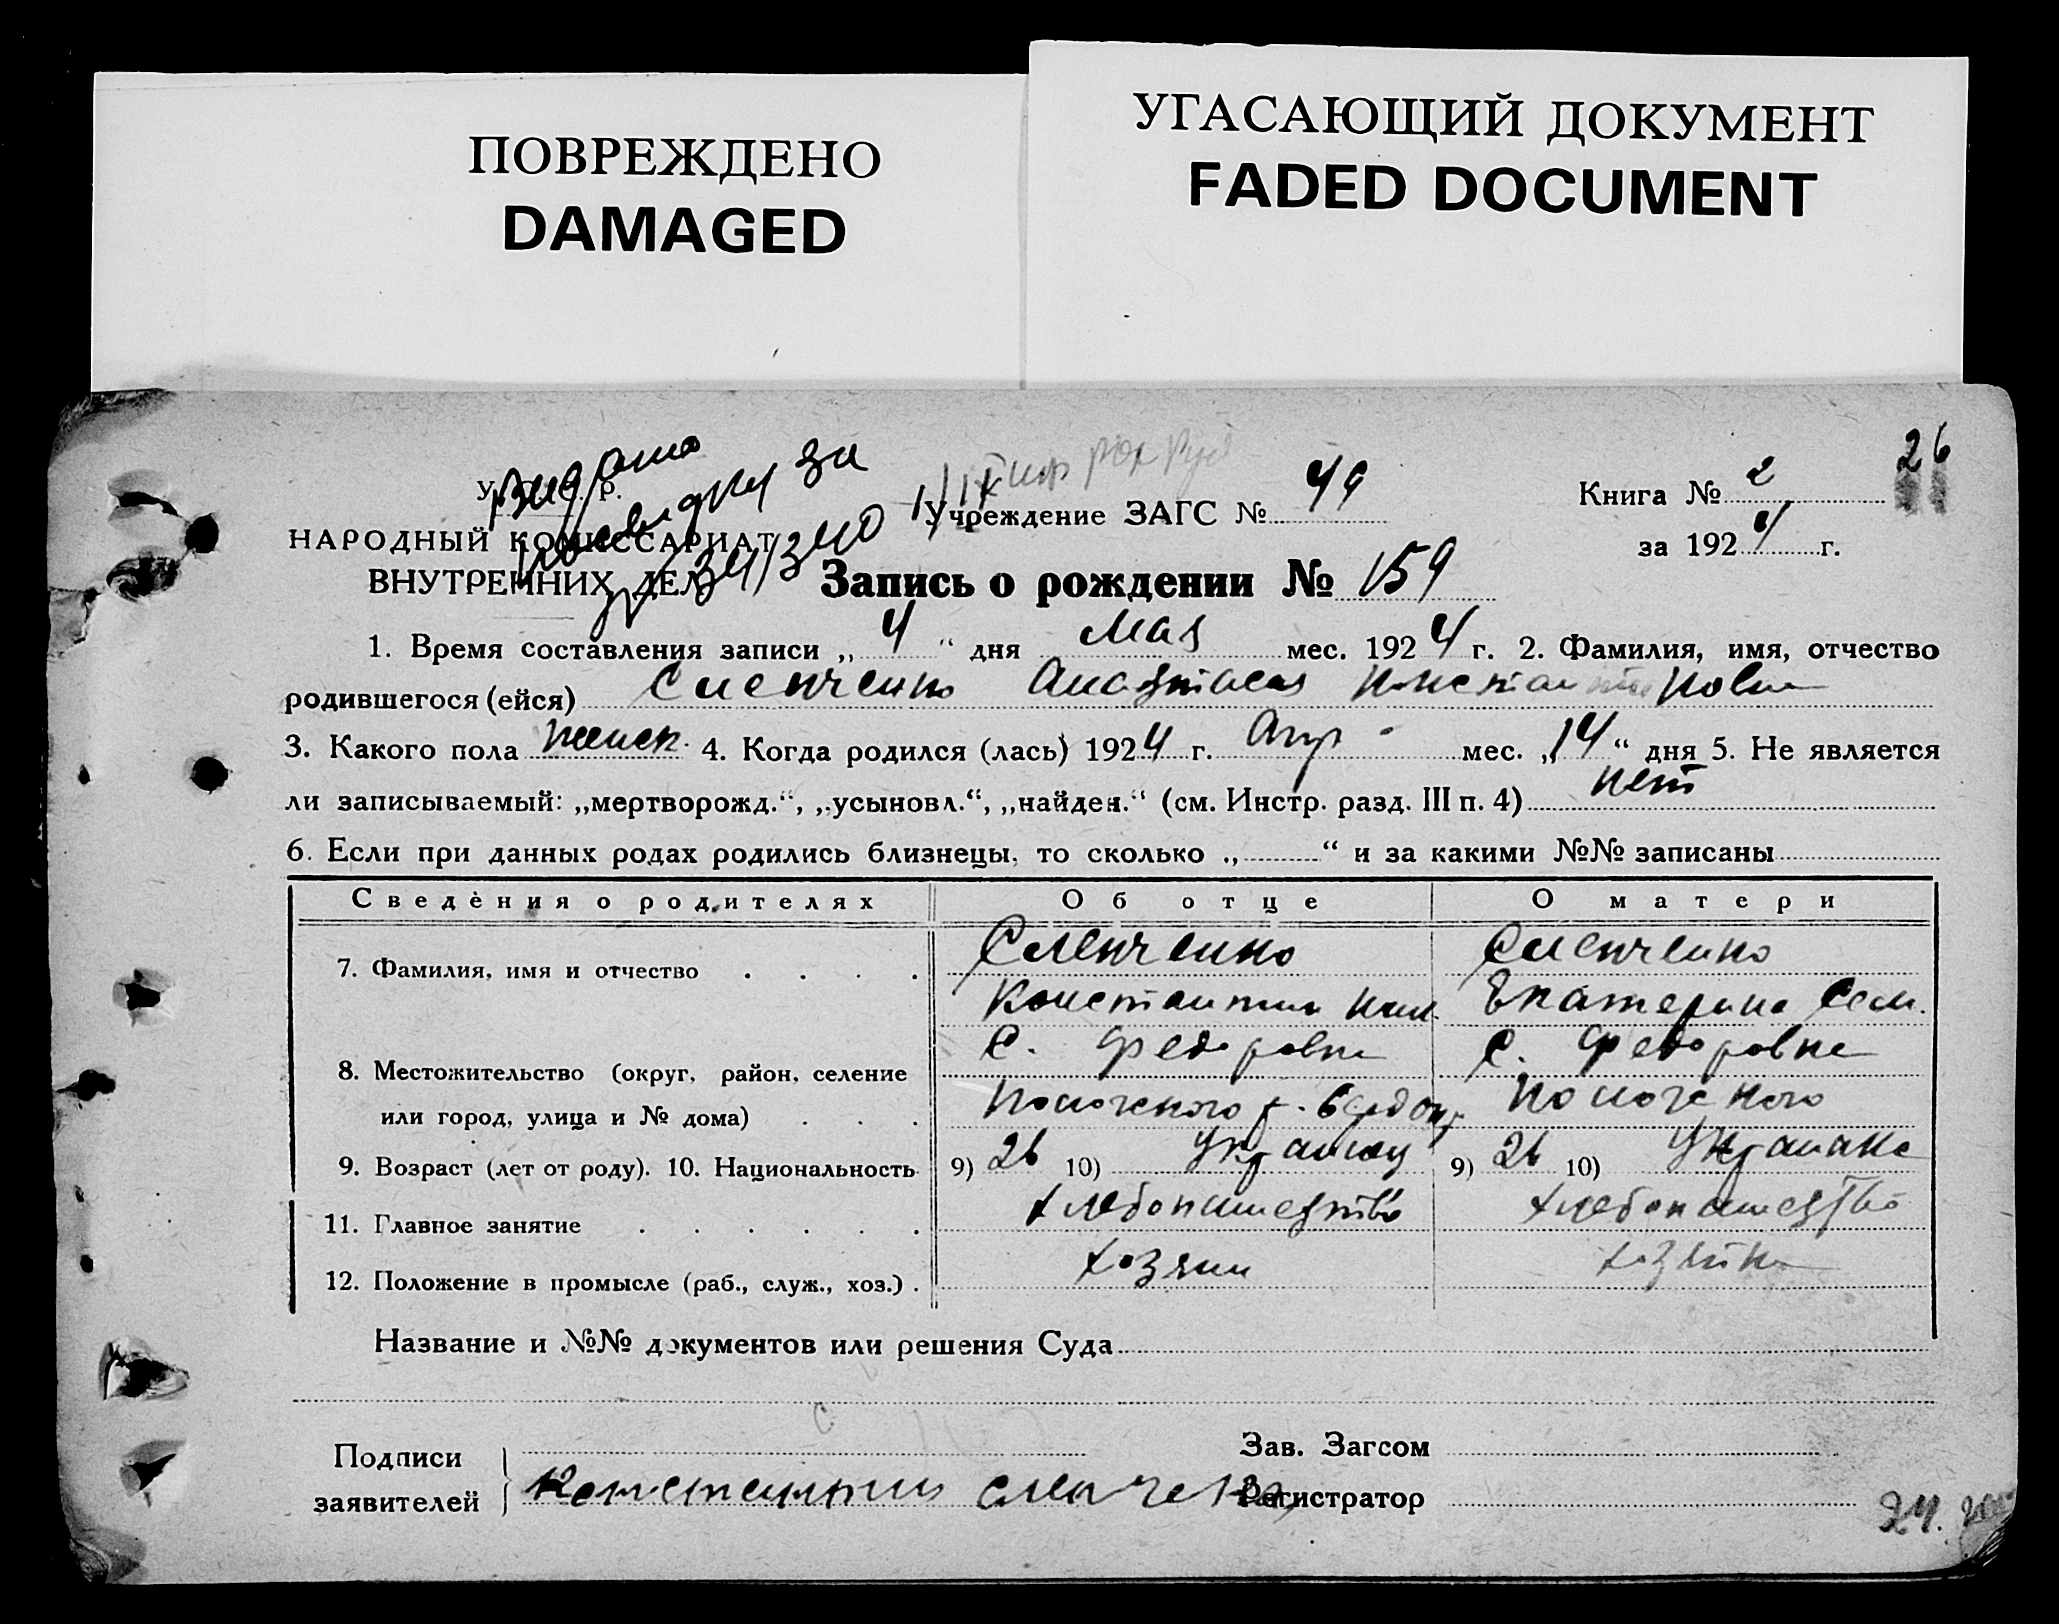 ПОВРЕЖДЕНО
DAMAGED
УГАСАЮЩИЙ ДОКУМЕНТ
FADED DOCUMENT
26
У. С. С. Р.
НАРОДНЫЙ КОМИССАРИАТ
ВНУТРЕННИХ ДЕЛ
Видано
довідку за
Учреждение ЗАГС № 49
Книга № 2
за 1924 г.
Запись о рождении № 159
1. Время составления записи „4“ дня Мая мес. 1924 г. 2. Фамилия, имя, отчество
родившегося (ейся) Сленченко Анастасия Константиновна
3. Какого пола женск. 4. Когда родился (лась) 1924 г. Апр - мес. „14“ дня 5. Не является
ли записываемый: „мертворожд.“, „усыновл.“, „найден.“ (см. Инстр. разд. III п. 4) нет
6. Если при данных родах родились близнецы, то сколько „ “ и за какими №№ записаны
Сведения о родителях Об отце О матери
7. Фамилия, имя и отчество . . . . Сленченко Сленченко
Константин Екатерина Сем.
С. Федоровка С. Федоровка
8. Местожительство (округ, район, селение
или город, улица и № дома) . . . Пологского р. Берд окр Пологского
9. Возраст (лет от роду). 10. Национальность 9) 26 10) Украинец 9) 26 10) Украинка
11. Главное занятие . . . . . . хлебопашество хлебопашество
12. Положение в промысле (раб., служ., хоз.) . хозяин хозяйка
Название и №№ документов или решения Суда
Подписи
заявителей
Константин Сленченко
Зав. Загсом
Регистратор
24.